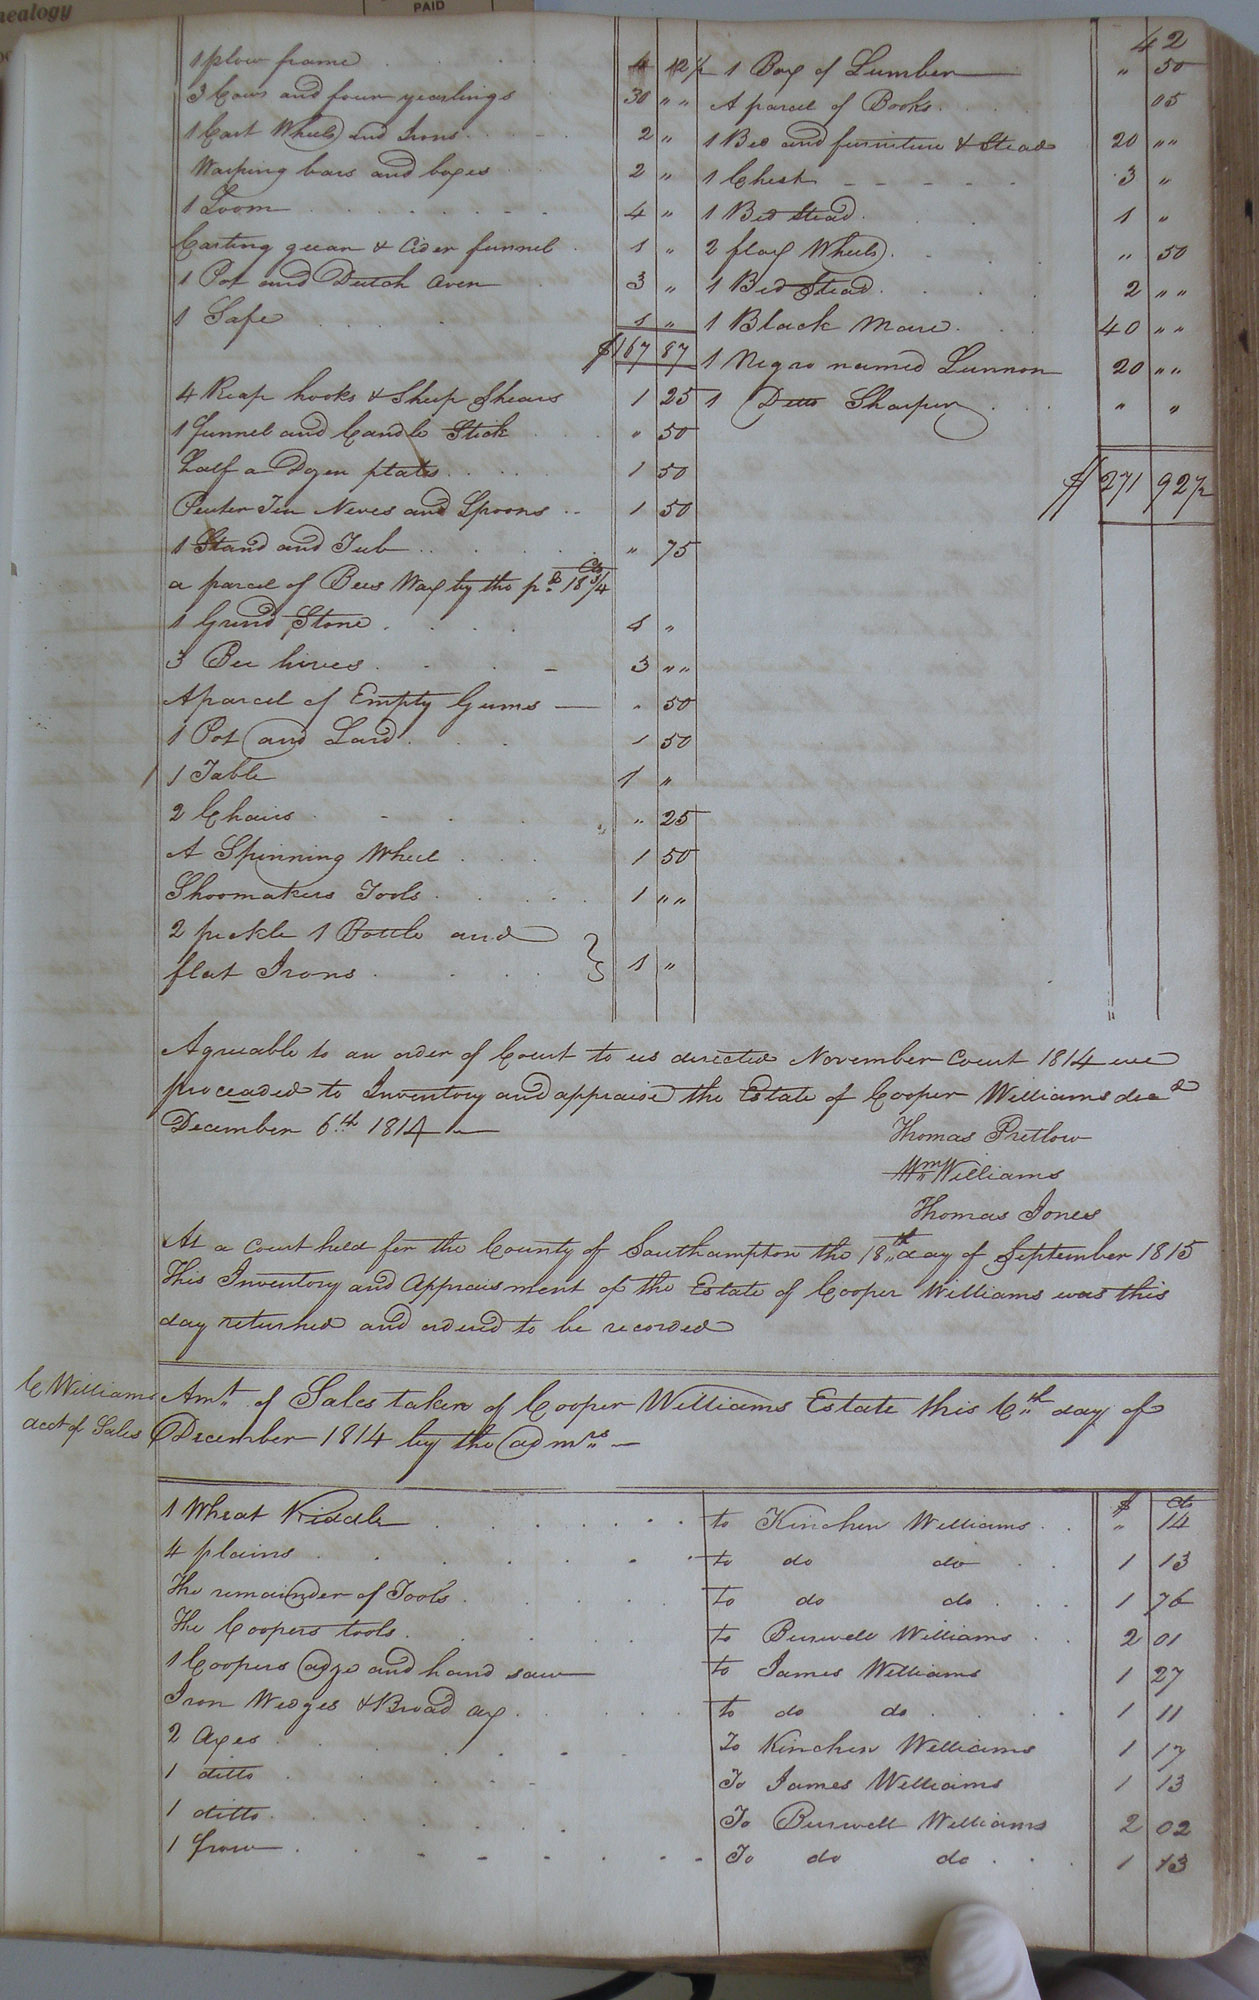 nealogy
PAID
42
1 plow frame 4 12½
3 Cows and four yearlings 30 " "
1 Cart Wheels and Irons 2 "
Warping bars and boxes 2 "
1 Loom 4 "
Carting gear & Cider funnel 1 "
1 Pot and Dutch Oven 3 "
1 Safe 1 "
$167 87
4 Reap hooks & Sheep Shears 1 25
1 funnel and Candle Stick " 50
half a Dozen plates 1 50
Peuter Tin Neves and Spoons 1 50
1 Stand and Tub " 75
a parcel of Bees Wax by the pd. 18¾ Cts
1 Grind Stone 1 "
3 Bee hives 3 " "
A parcel of Empty Gums " 50
1 Pot and Lard 1 50
1 Table 1 "
2 Chairs " 25
A Spinning Wheel 1 50
Shoomakers Tools 1 " "
2 pickle 1 Bottle and
flat Irons } 1 "
1 Box of Lumber " 50
A parcel of Books 05
1 Bed and furniture & Stead 20 " "
1 Chest 3 "
1 Bed Stead 1 "
2 flax Wheels " 50
1 Bed Stead 2 " "
1 Black Mare 40 " "
1 Negro named Lunnon 20 " "
1 Ditto Sharper " "
$271 92½
Agreeable to an order of Court to us directed November Court 1814 we
proceaded to Inventory and appraise the Estate of Cooper Williams decd
December 6th 1814
Thomas Pretlow
Wm Williams
Thomas Jones
At a Court held for the County of Southampton the 18th day of September 1815
This Inventory and Appraisment of the Estate of Cooper Williams was this
day returned and orderd to be recorded
C Williams
acct of Sales
Amt. of Sales taken of Cooper Williams Estate this 6th day of
December 1814 by the admrs
$ cts
1 Wheat Riddle to Kinchen Williams " 14
4 plains to do do 1 13
The remainder of Tools to do do 1 76
The Coopers tools to Burwell Williams 2 01
1 Coopers adze and hand saw to James Williams 1 27
Iron Wedges & Broad ax to do do 1 11
2 Axes To Kinchen Williams 1 17
1 ditto To James Williams 1 13
1 ditto To Burwell Williams 2 02
1 frow To do do 1 13